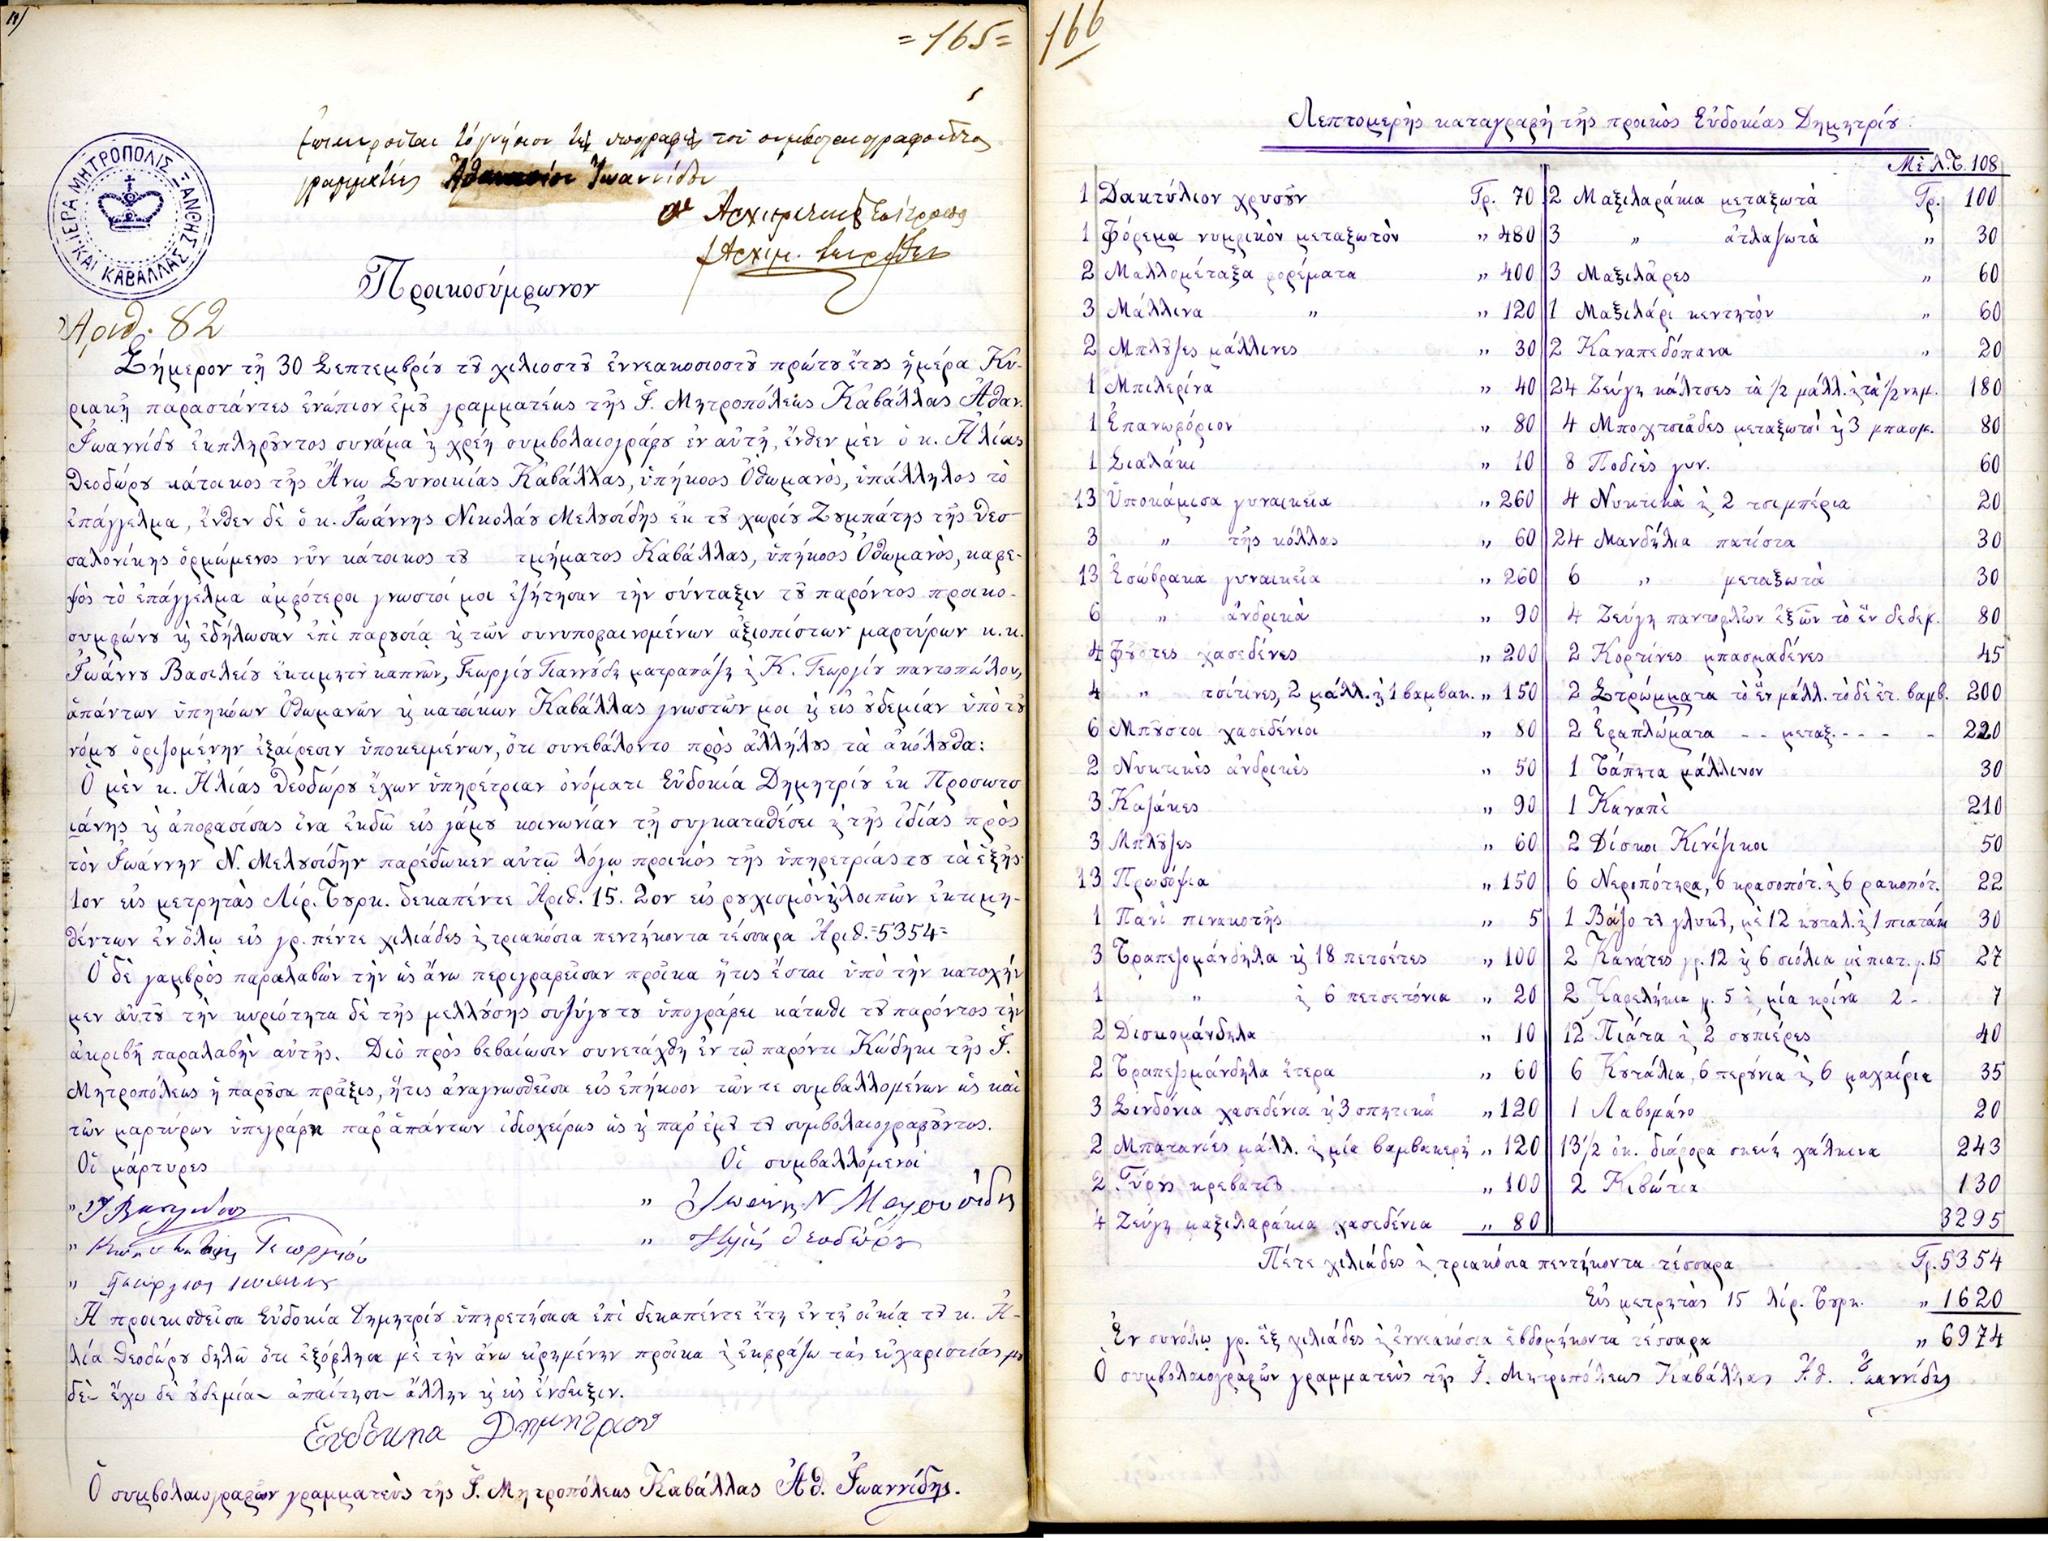 = 165 =
ΙΕΡΑ ΜΗΤΡΟΠΟΛΙΣ ΞΑΝΘΗΣ ΚΑΙ ΚΑΒΑΛΛΑΣ
Ἐπικυροῦται τὸ γνήσιον τῆς ὑπογραφῆς τοῦ συμβολαιογραφοῦντος
γραμματέως Ἀθανασίου Ἰωαννίδου
Ὁ Ἀρχιερατικὸς Ἐπίτροπος
Ἀρχιμ.
Προικοσύμφωνον
Ἀριθ. 82
Σήμερον τῇ 30 Σεπτεμβρίου τοῦ χιλιοστοῦ ἐννεακοσιοστοῦ πρώτου ἔτους ἡμέρᾳ Κυ-
ριακῇ παραστάντες ἐνώπιον ἐμοῦ γραμματέως τῆς Ἱ. Μητροπόλεως Καβάλλας Ἀθαν.
Ἰωαννίδου ἐκπληροῦντος συνάμα ϗ χρέη συμβολαιογράφου ἐν αὐτῇ, ἔνθεν μὲν ὁ κ. Ἠλίας
Θεοδώρου κάτοικος τῆς Ἄνω Συνοικίας Καβάλλας, ὑπήκοος Ὀθωμανὸς, ὑπάλληλος τὸ
ἐπάγγελμα, ἔνθεν δὲ ὁ κ. Ἰωάννης Νικολάου Μελουσίδης ἐκ τοῦ χωρίου Ζουμπάτης τῆς Θεσ-
σαλονίκης ὁρμώμενος νῦν κάτοικος τοῦ τμήματος Καβάλλας, ὑπήκοος Ὀθωμανὸς, καφε-
ψὸς τὸ ἐπάγγελμα ἀμφότεροι γνωστοί μοι ἐζήτησαν τὴν σύνταξιν τοῦ παρόντος προικο-
συμφώνου ϗ ἐδήλωσαν ἐπὶ παρουσίᾳ ϗ τῶν συνυποφαινομένων ἀξιοπίστων μαρτύρων κ.κ.
Ἰωάννου Βασιλείου ἐκτιμητοῦ καπνῶν, Γεωργίου Γιαννούδη ματραπάζη ϗ Κ. Γεωργίου παντοπώλου,
ἁπάντων ὑπηκόων Ὀθωμανῶν ϗ κατοίκων Καβάλλας γνωστῶν μοι ϗ εἰς οὐδεμίαν ὑπὸ τοῦ
νόμου ὁριζομένην ἐξαίρεσιν ὑποκειμένων, ὅτι συνεβάλοντο πρὸς ἀλλήλους τὰ ἀκόλουθα:
Ὁ μὲν κ. Ἠλίας Θεοδώρου ἔχων ὑπηρέτριαν ὀνόματι Εὐδοκία Δημητρίου ἐκ Προσωτσ-
ιάνης ϗ ἀποφασίσας ἵνα ἐκδῷ εἰς γάμου κοινωνίαν τῇ συγκαταθέσει ϗ τῆς ἰδίας πρὸς
τὸν Ἰωάννην Ν. Μελουσίδην παρέδωκεν αὐτῷ λόγῳ προικὸς τῆς ὑπηρετρίας του τὰ ἑξῆς:
1ον εἰς μετρητὰς Λίρ. Τουρκ. δεκαπέντε Ἀριθ. 15. 2ον εἰς ρουχισμὸν ϗ λοιπῶν ἐκτιμη-
θέντων ἐν ὅλῳ εἰς γρ. πέντε χιλιάδες ϗ τριακόσια πεντήκοντα τέσσαρα Ἀριθ. =5354=
Ὁ δὲ γαμβρὸς παραλαβὼν τὴν ὡς ἄνω περιγραφεῖσαν προῖκα ἥτις ἔσται ὑπὸ τὴν κατοχὴν
μεν αὐτοῦ τὴν κυριότητα δὲ τῆς μελλούσης συζύγου του ὑπογράφει κάτωθι τοῦ παρόντος τὴν
ἀκριβῆ παραλαβὴν αὐτῆς. Διὸ πρὸς βεβαίωσιν συνετάχθη ἐν τῷ παρόντι Κώδηκι τῆς Ἱ.
Μητροπόλεως ἡ παροῦσα πρᾶξις, ἥτις ἀναγνωσθεῖσα εἰς ἐπήκοον τῶν τε συμβαλλομένων ὡς καὶ
τῶν μαρτύρων ὑπεγράφη παρ' ἁπάντων ἰδιοχείρως ὡς ϗ παρ' ἐμοῦ τοῦ συμβολαιογραφοῦντος.
Οἱ μάρτυρες Οἱ συμβαλλόμενοι
" Ι Βασιλείου " Ἰωάννης Ν Μελουσίδης
" Γεωργίου " Ηλίας Θεοδώρου
" Γεώργιος
Ἡ προικισθεῖσα Εὐδοκία Δημητρίου ὑπηρετήσασα ἐπὶ δεκαπέντε ἔτη ἐν τῇ οἰκίᾳ τοῦ κ. Ἠ-
λία Θεοδώρου δηλῶ ὅτι ἐξόφλησα μὲ τὴν ἄνω εἰρημένην προῖκα ϗ ἐκφράζω τὰς εὐχαριστίας μου
δὲν ἔχω δὲ οὐδεμίαν ἀπαίτησιν ἄλλην ϗ εἰς ἔνδειξιν.
Εὐδοκηα Δημητριου
Ὁ συμβολαιογραφῶν γραμματεὺς τῆς Ἱ. Μητροπόλεως Καβάλλας Ἀθ. Ἰωαννίδης.
166
Λεπτομερὴς καταγραφὴ τῆς προικὸς Εὐδοκίας Δημητρίου.
Μὲ Λ.Τ. 108
1 Δακτύλιον χρυσοῦν Γρ. 70
1 Φόρεμα νυμφικὸν μεταξωτὸν " 480
2 Μαλλομέταξα φορέματα " 400
3 Μάλλινα " " 120
2 Μπλοῦζες μάλλινες " 30
1 Μπιλερίνα " 40
1 Ἐπανωφόριον " 80
1 Σιαλάκι " 10
13 Ὑποκάμισα γυναικεῖα " 260
3 " τῆς κόλλας " 60
13 Ἐσώβρακα γυναικεῖα " 260
6 " ἀνδρικὰ " 90
4 Φοῦστες χασεδένες " 200
4 " τσίτινες, 2 μάλλ. ϗ 1 βαμβακ. " 150
6 Μποῦστοι χασεδένιοι " 80
2 Νυκτικὲς ἀνδρικὲς " 50
3 Καζάκες " 90
3 Μπλοῦζες " 60
13 Προσόψια " 150
1 Πανὶ πινακοτῆς " 5
3 Τραπεζομάνδηλα ϗ 18 πετσέτες " 100
1 " ϗ 6 πετσετόνια " 20
2 Δισκομάνδηλα " 10
2 Τραπεζομάνδηλα ἕτερα " 60
3 Σινδόνια χασεδένια ϗ 3 σπητικὰ " 120
2 Μπατανίες μάλλ. ϗ μία βαμβακερὴ " 120
2 Γύρους κρεβατιοῦ " 100
4 Ζεύγη μαξιλαράκια χασεδένια " 80
2 Μαξιλαράκια μεταξωτὰ Γρ. 100
3 " ἀτλαζωτὰ " 30
3 Μαξιλάρες " 60
1 Μαξιλάρι κεντητὸν " 60
2 Καναπεδόπανα " 20
24 Ζεύγη κάλτσες τὰ 1/2 μάλλ. ϗ τὰ 1/2 νημ. 180
4 Μποχτσιάδες μεταξωτοὶ ϗ 3 μπασμ. 80
8 Ποδιὲς γυν. 60
4 Νυκτικὰ ϗ 2 τσιμπέρια 20
24 Μανδήλια πατίστα 30
6 " μεταξωτὰ 30
4 Ζεύγη παντοφλῶν ἐξ ὧν τὸ ἓν δεδεγ. 80
2 Κορτίνες μπασμαδένες 45
2 Στρώμματα τὸ ἓν μάλλ. τὸ δὲ ἕτ. βαμβ. 200
2 Ἐφαπλώματα - - μεταξ. - - - - 220
1 Τάπητα μάλλινον 30
1 Καναπὲ 210
2 Δίσκοι Κινέζικοι 50
6 Νεροπότηρα, 6 κρασοπότ. ϗ 6 ρακοπότ. 22
1 Βάζο τοῦ γλυκοῦ, μὲ 12 κουταλ. ϗ 1 πιατάκι 30
2 Κανάτες γρ. 12 ϗ 6 σιόλια μὲ πιατ. γ. 15 27
2 Καρελήκια γ. 5 ϗ μία κρίνα 2 - 7
12 Πιάτα ϗ 2 σουπιέρες 40
6 Κουτάλια, 6 περούνια ϗ 6 μαχαίρια 35
1 Λαβομάνο 20
13 1/2 ὀκ. διάφορα σκεύη χάλκινα 243
2 Κιβώτια 130
3295
Πέτε χιλιάδες ϗ τριακόσια πεντήκοντα τέσσαρα Γρ. 5354
Εἰς μετρητὰς 15 λίρ. Τουρκ. " 1620
Ἐν συνόλῳ γρ. ἓξ χιλιάδες ϗ ἐννεακόσια ἑβδομήκοντα τέσσαρα " 6974
Ὁ συμβολαιογραφῶν γραμματεὺς τῆς Ἱ. Μητροπόλεως Καβάλλας Ἀθ. Ἰωαννίδης